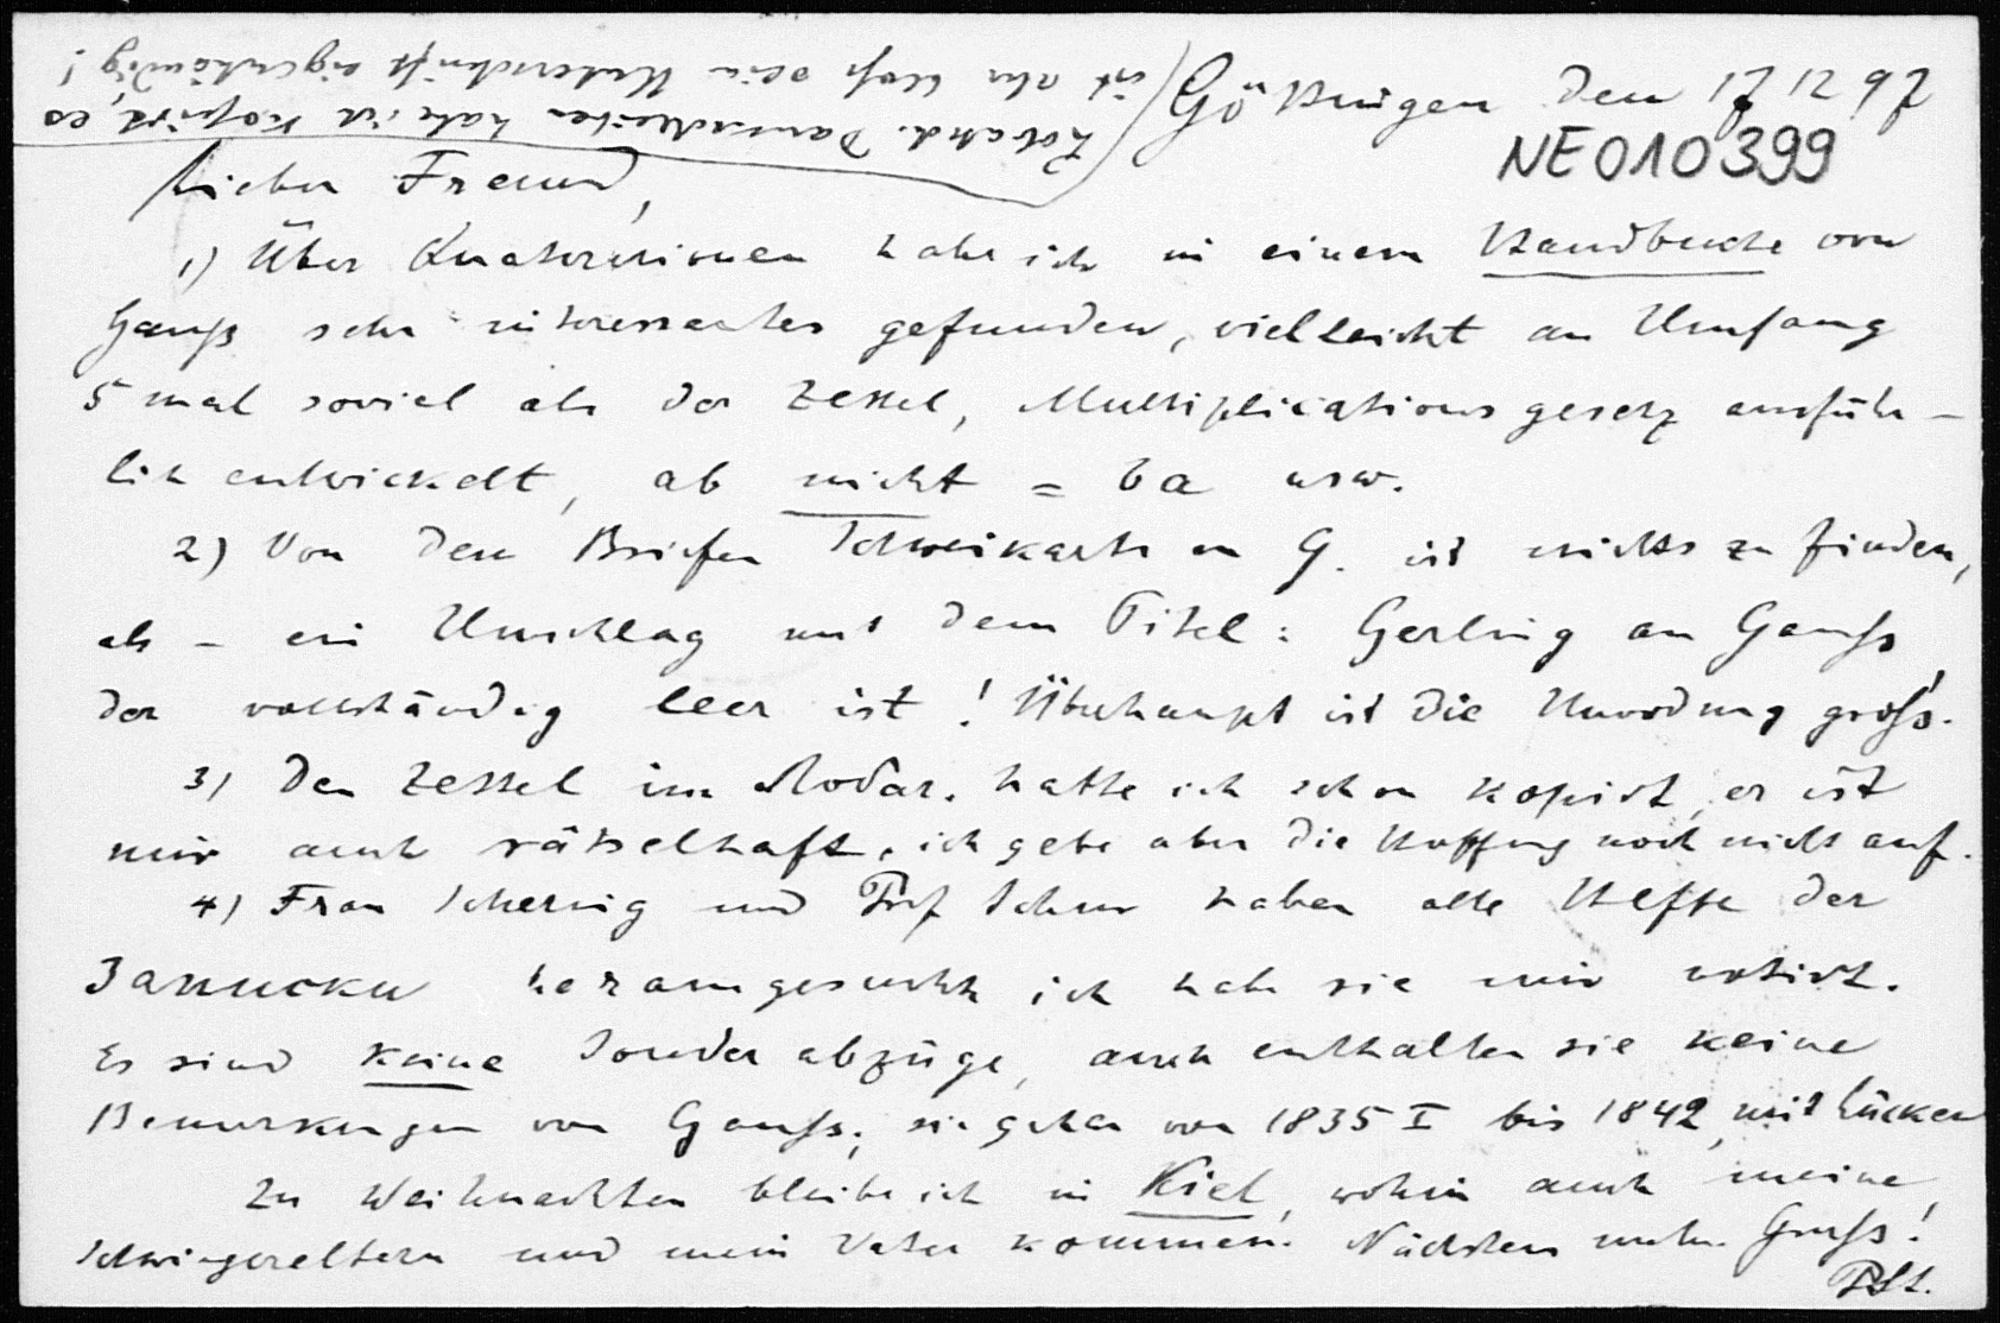 Göttingen den 17 12 97
NE010399
Lieber Freund,
1) Über Quaternionen habe ich in einem Handbuche von
Gauß sehr interessantes gefunden, vielleicht an Umfang
5 mal soviel als der Zettel, Multiplicationsgesetz ausführ-
lich entwickelt, ab nicht = ba usw.
2) Von den Briefen Schweikarts an G. ist nichts zu finden,
als – ein Umschlag mit dem Titel: Gerling an Gauß,
der vollständig leer ist! Überhaupt ist die Unordnung groß.
3) Den Zettel im Lobac. hatte ich schon kopirt, er ist
mir auch rätselhaft, ich gebe aber die Hoffnung noch nicht auf.
4) Frau Schering und Prof Schur haben alle Hefte der
Записки herausgesucht, ich habe sie mir notirt.
Es sind keine Sonderabzüge, auch enthalten sie keine
Bemerkungen von Gauß; sie gehen von 1835 I bis 1842, mit Lücken
Zu Weihnachten bleibe ich in Kiel, wohin auch meine
Schwiegereltern und mein Vater kommen. Nächstens mehr. Gruß!
PSt.
Lobatsch. Dankschreiben habe ich kopirt, es
ist aber bloß die Unterschrift eigenhändig!